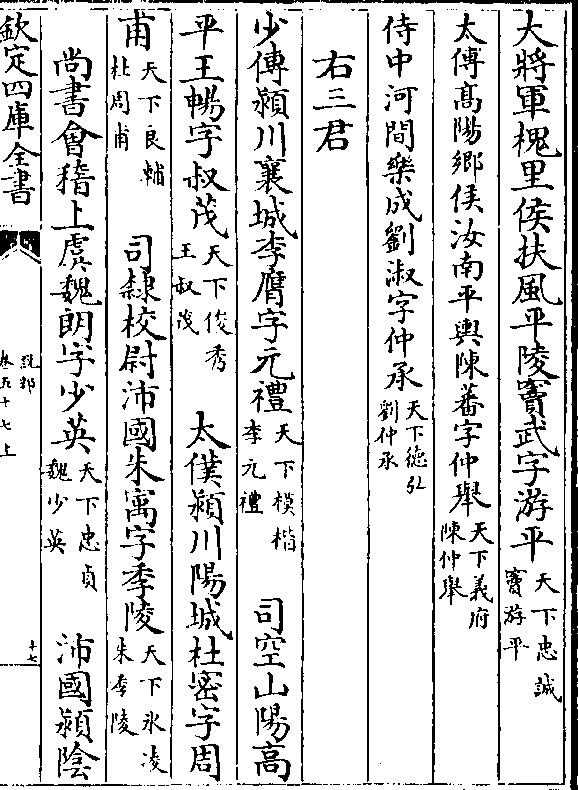 大將軍槐里侯扶風平陵竇武字游平天下忠誠竇游平
太傅髙陽鄉侯汝南平輿陳蕃字仲舉天下義府陳仲舉
侍中河間樂成劉淑字仲承天下徳弘劉仲承
右三君
少傅潁川襄城李膺字元禮天下模楷李元禮 司空山陽高
平王暢字叔茂天下俊秀王叔茂 太僕潁川陽城杜密字周
甫天下良輔杜周甫 司隸校尉沛國朱㝢字季陵天下氷凌朱季陵
尚書會稽上虞魏朗字少英天下忠貞魏少英 沛國潁陰
欽定四庫全書
說郛
卷五十七上
十七